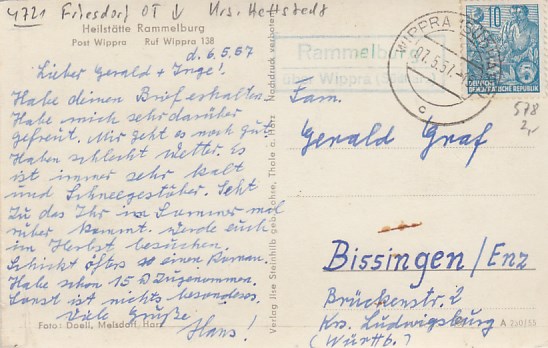 4721 Friesdorf OT ↓ Krs. Hettstedt
Heilstätte Rammelburg
Post Wippra Ruf Wippra 138
d. 6.5.57
Lieber Gerald + Inge!
Habe deinen Brief erhalten.
Habe mich sehr darüber
gefreut. Mir geht es noch gut
Haben schlecht Wetter. Es
ist immer sehr kalt
und Schneegestüber. Seht
zu das Ihr im Sommer mal
rüber kommt. Werde euch
im Herbst besuchen.
Schickt öfters so einen Roman.
Habe schon 15 ℔ Zugenommen.
Sonst ist nichts besonderes.
Viele Grüße
Hans!
Foto: Doell, Melsdorf Harz
Verlag Ilse Steinhilb geb. Lohse, Thale a. Harz Nachdruck verboten
Rammelburg
über Wippra
WIPPRA
07.5.57
c
10
DEUTSCHE
DEMOKRATISCHE REPUBLIK
578
2,-
Fam.
Gerald Graf
Bissingen/Enz
Brückenstr. 2
Krs. Ludwigsburg
(Württb.)
A 250/55